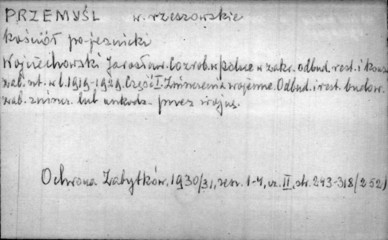 PRZEMYŚL w. rzeszowskie
kościół po-jezuicki
Wojciechowski Jarosław. Co zrob. w Polsce w zakr. odbud. rest. i kons.
zab. szt. w l. 1919-1929. Część I. Zniszczenia wojenne. Odbud. i rest. budow.
zab. zniszcz. lub uszkodz. przez wojnę.
Ochrona Zabytków, 1930/31, zesz. 1-4, cz. II, str. 243-318 (252)